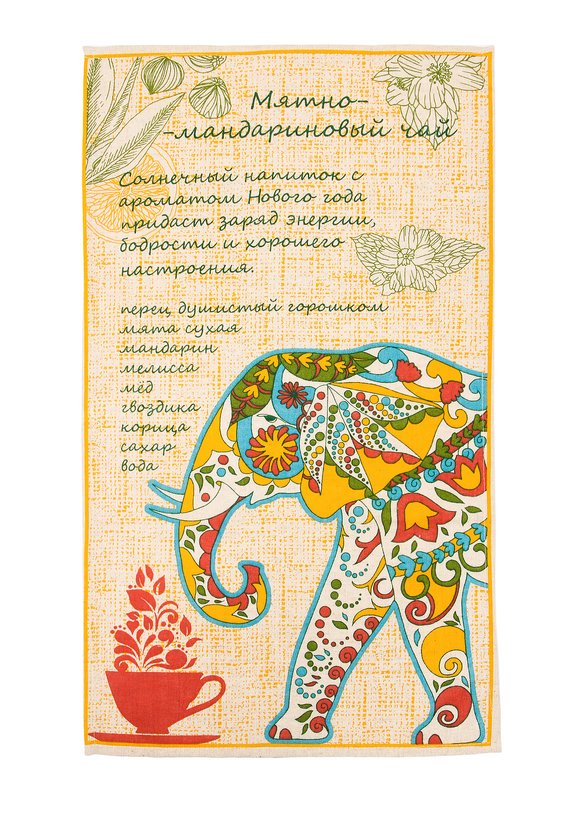 Мятно-
-мандариновый чай
Солнечный напиток с
ароматом Нового года
придаст заряд энергии,
бодрости и хорошего
настроения.
перец душистый горошком
мята сухая
мандарин
мелисса
мёд
гвоздика
корица
сахар
вода